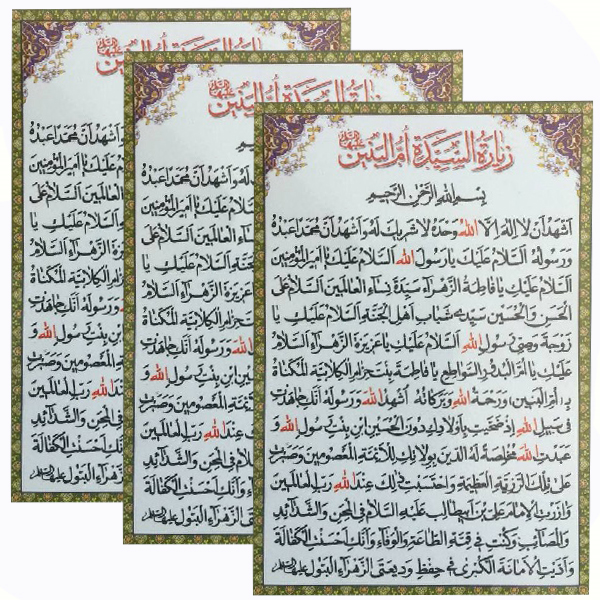 زيارة السيدة أم البنين عليها السلام
بسم الله الرحمن الرحيم
اشهد ان لا اله الا الله وحده لا شريك له واشهد ان محمدا عبده
ورسوله السلام عليك يا رسول الله السلام عليك يا امير المؤمنين
السلام عليك يا فاطمة الزهراء سيدة نساء العالمين السلام على
الحسن والحسين سيدي شباب اهل الجنة السلام عليك يا
زوجة وصي رسول الله السلام عليك يا عزيزة الزهراء السلام
عليك يا ام البدور السواطع يا فاطمة بنت حزام الكلابية المكناة
بـ: ام البنين، ورحمة الله وبركاته اشهد الله ورسوله انك جاهدت
في سبيل الله اذ ضحيت باولادك دون الحسين ابن بنت رسول الله و
عبدت الله مخلصة له الدين بولائك للائمة المعصومين وصبرت
على تلك الرزية العظيمة واحتسبت ذلك عند الله رب العالمين
وازرت الامام علي بن ابي طالب عليه السلام في المحن والشدائد
والمصائب وكنت في قمة الطاعة والوفاء وانك احسنت الكفالة
واديت الامانة الكبرى في حفظ وديعتي الزهراء البتول عليها السلام